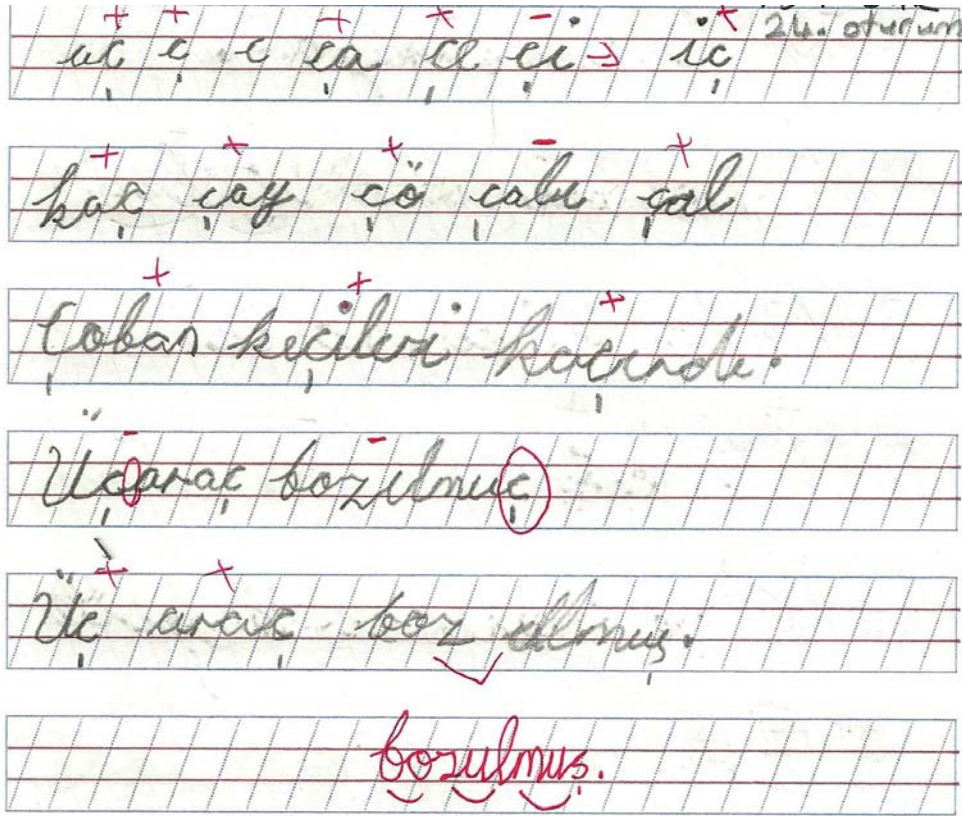 24. oturum
uç ç c ça çe çi → iç
kaç çay çö çalı çal
Çoban keçileri kaçırdı.
Üç araç bozulmuç
Üç araç boz ulmuş.
bozulmuş.